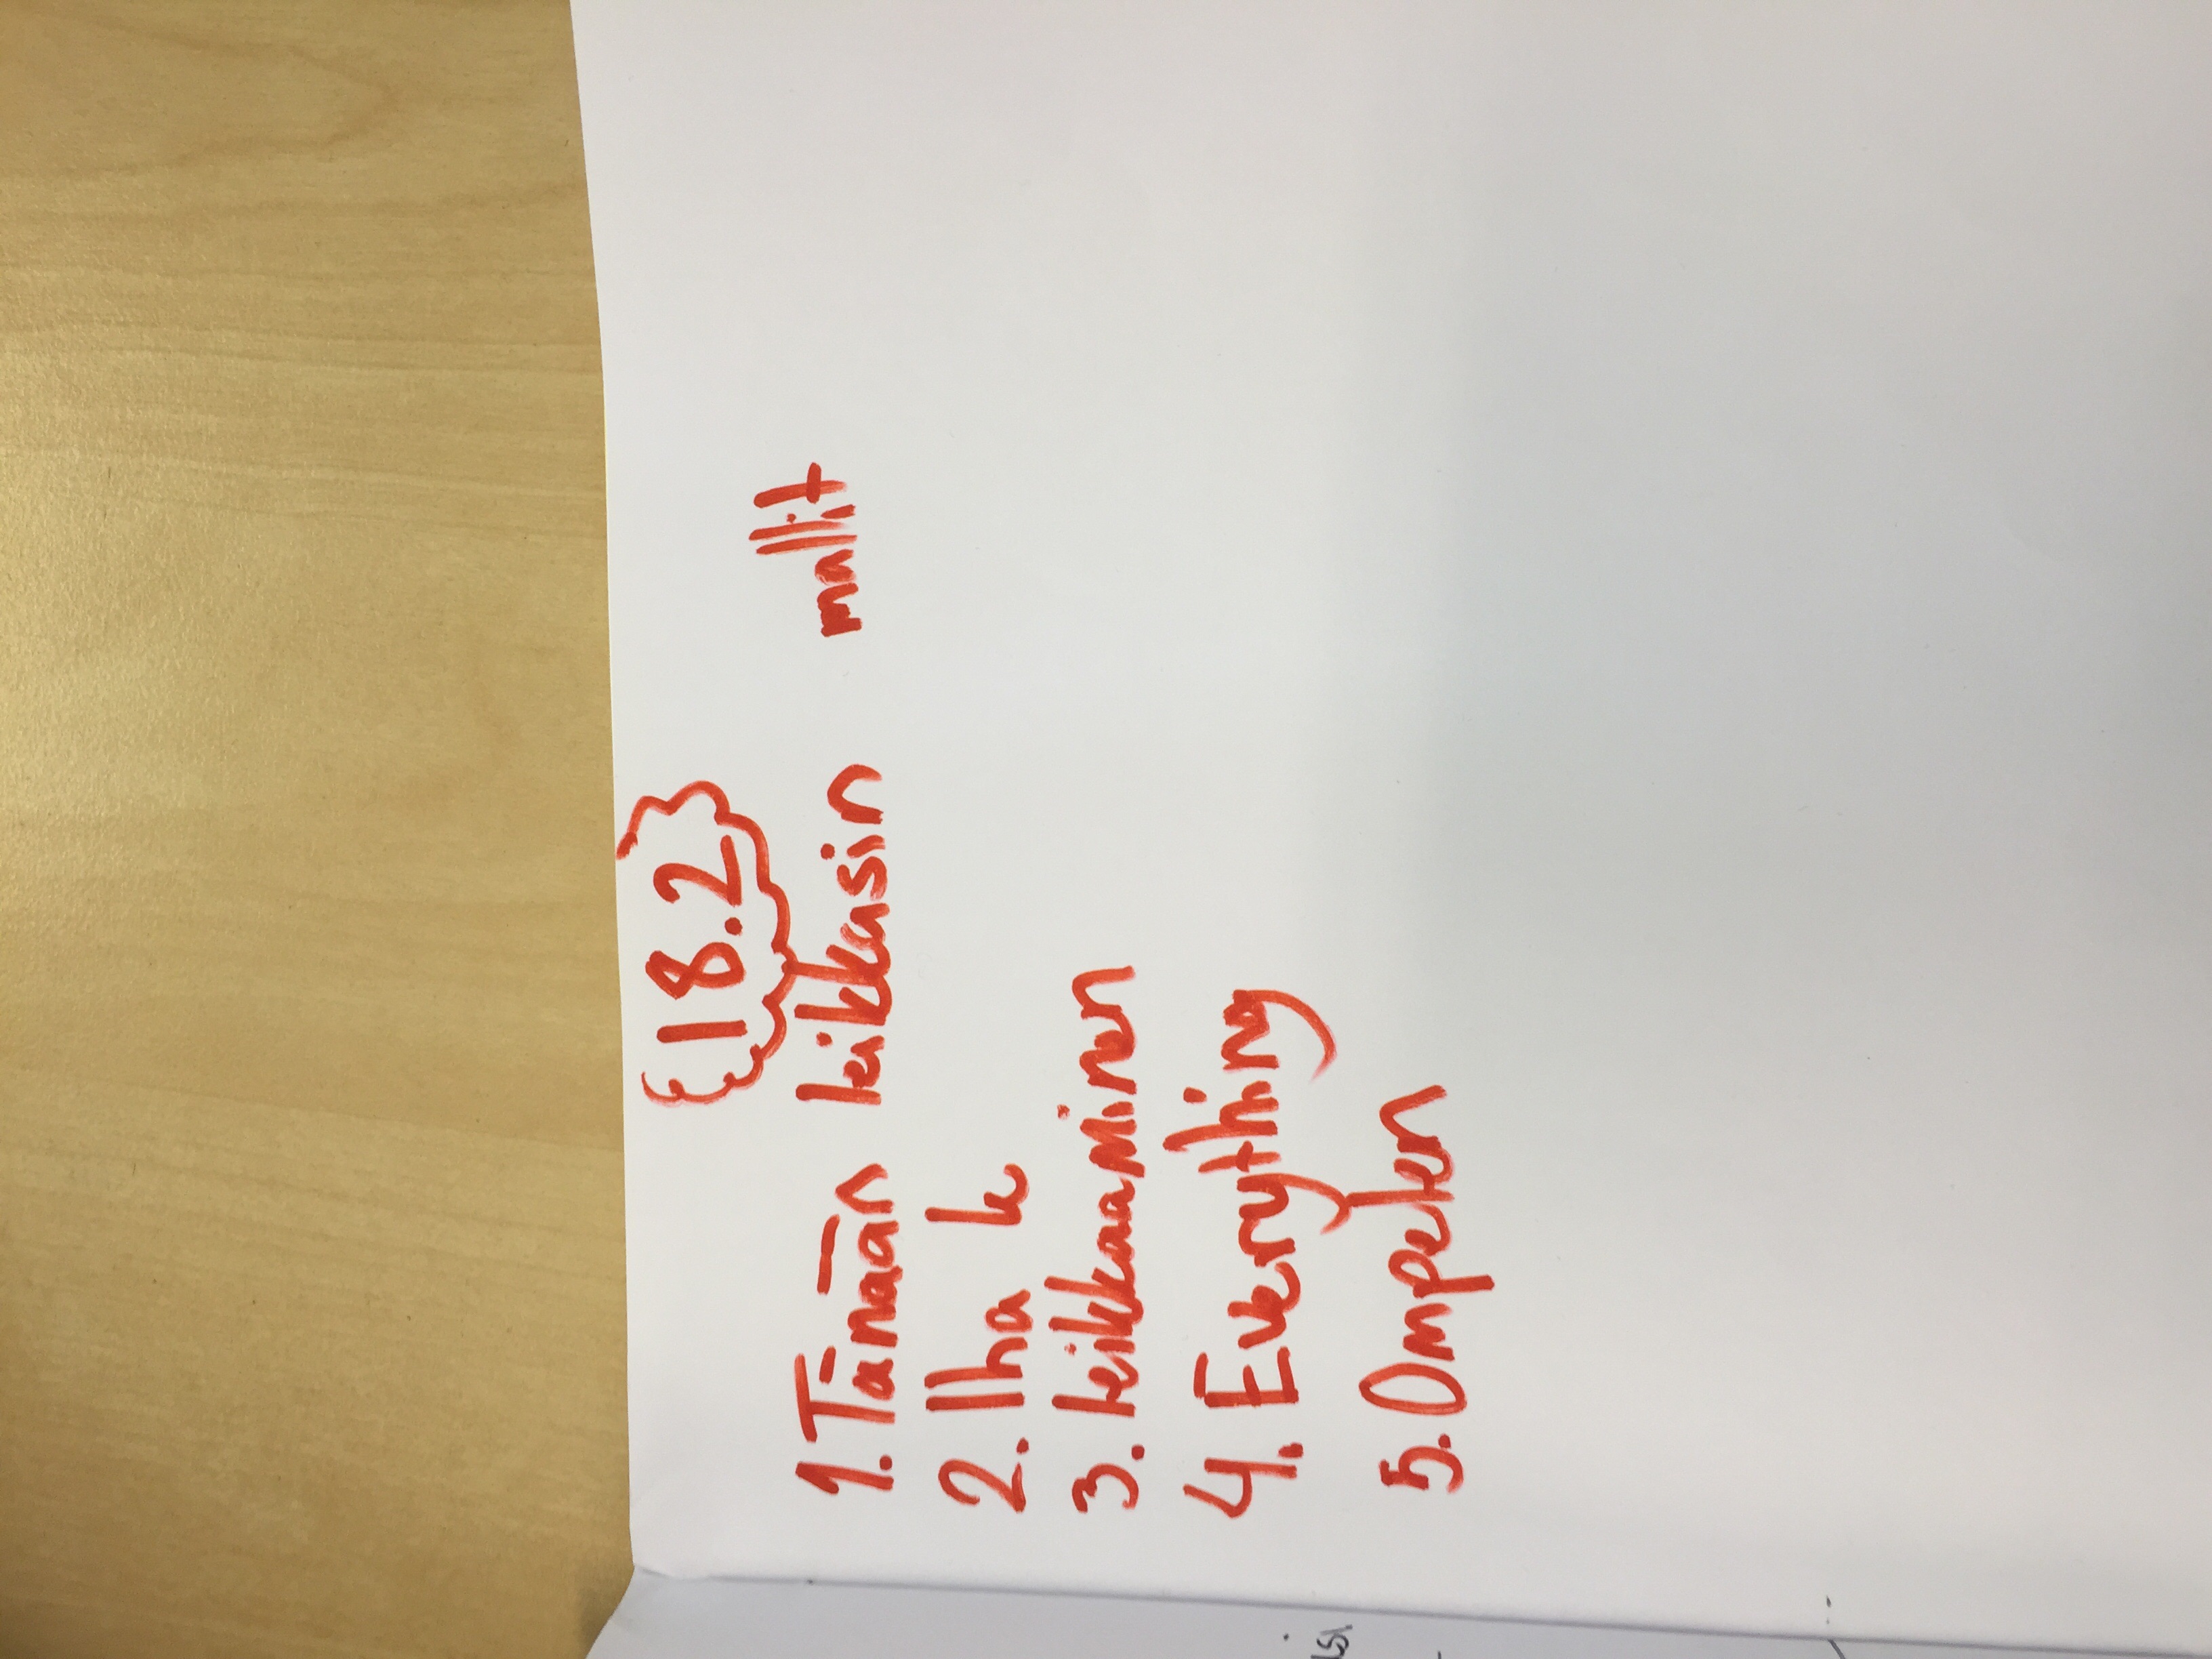 18.2
1. Tänään leikkasin mallit
2. Iha
3. leikkaaminen
4. Everything
5. Ompelen